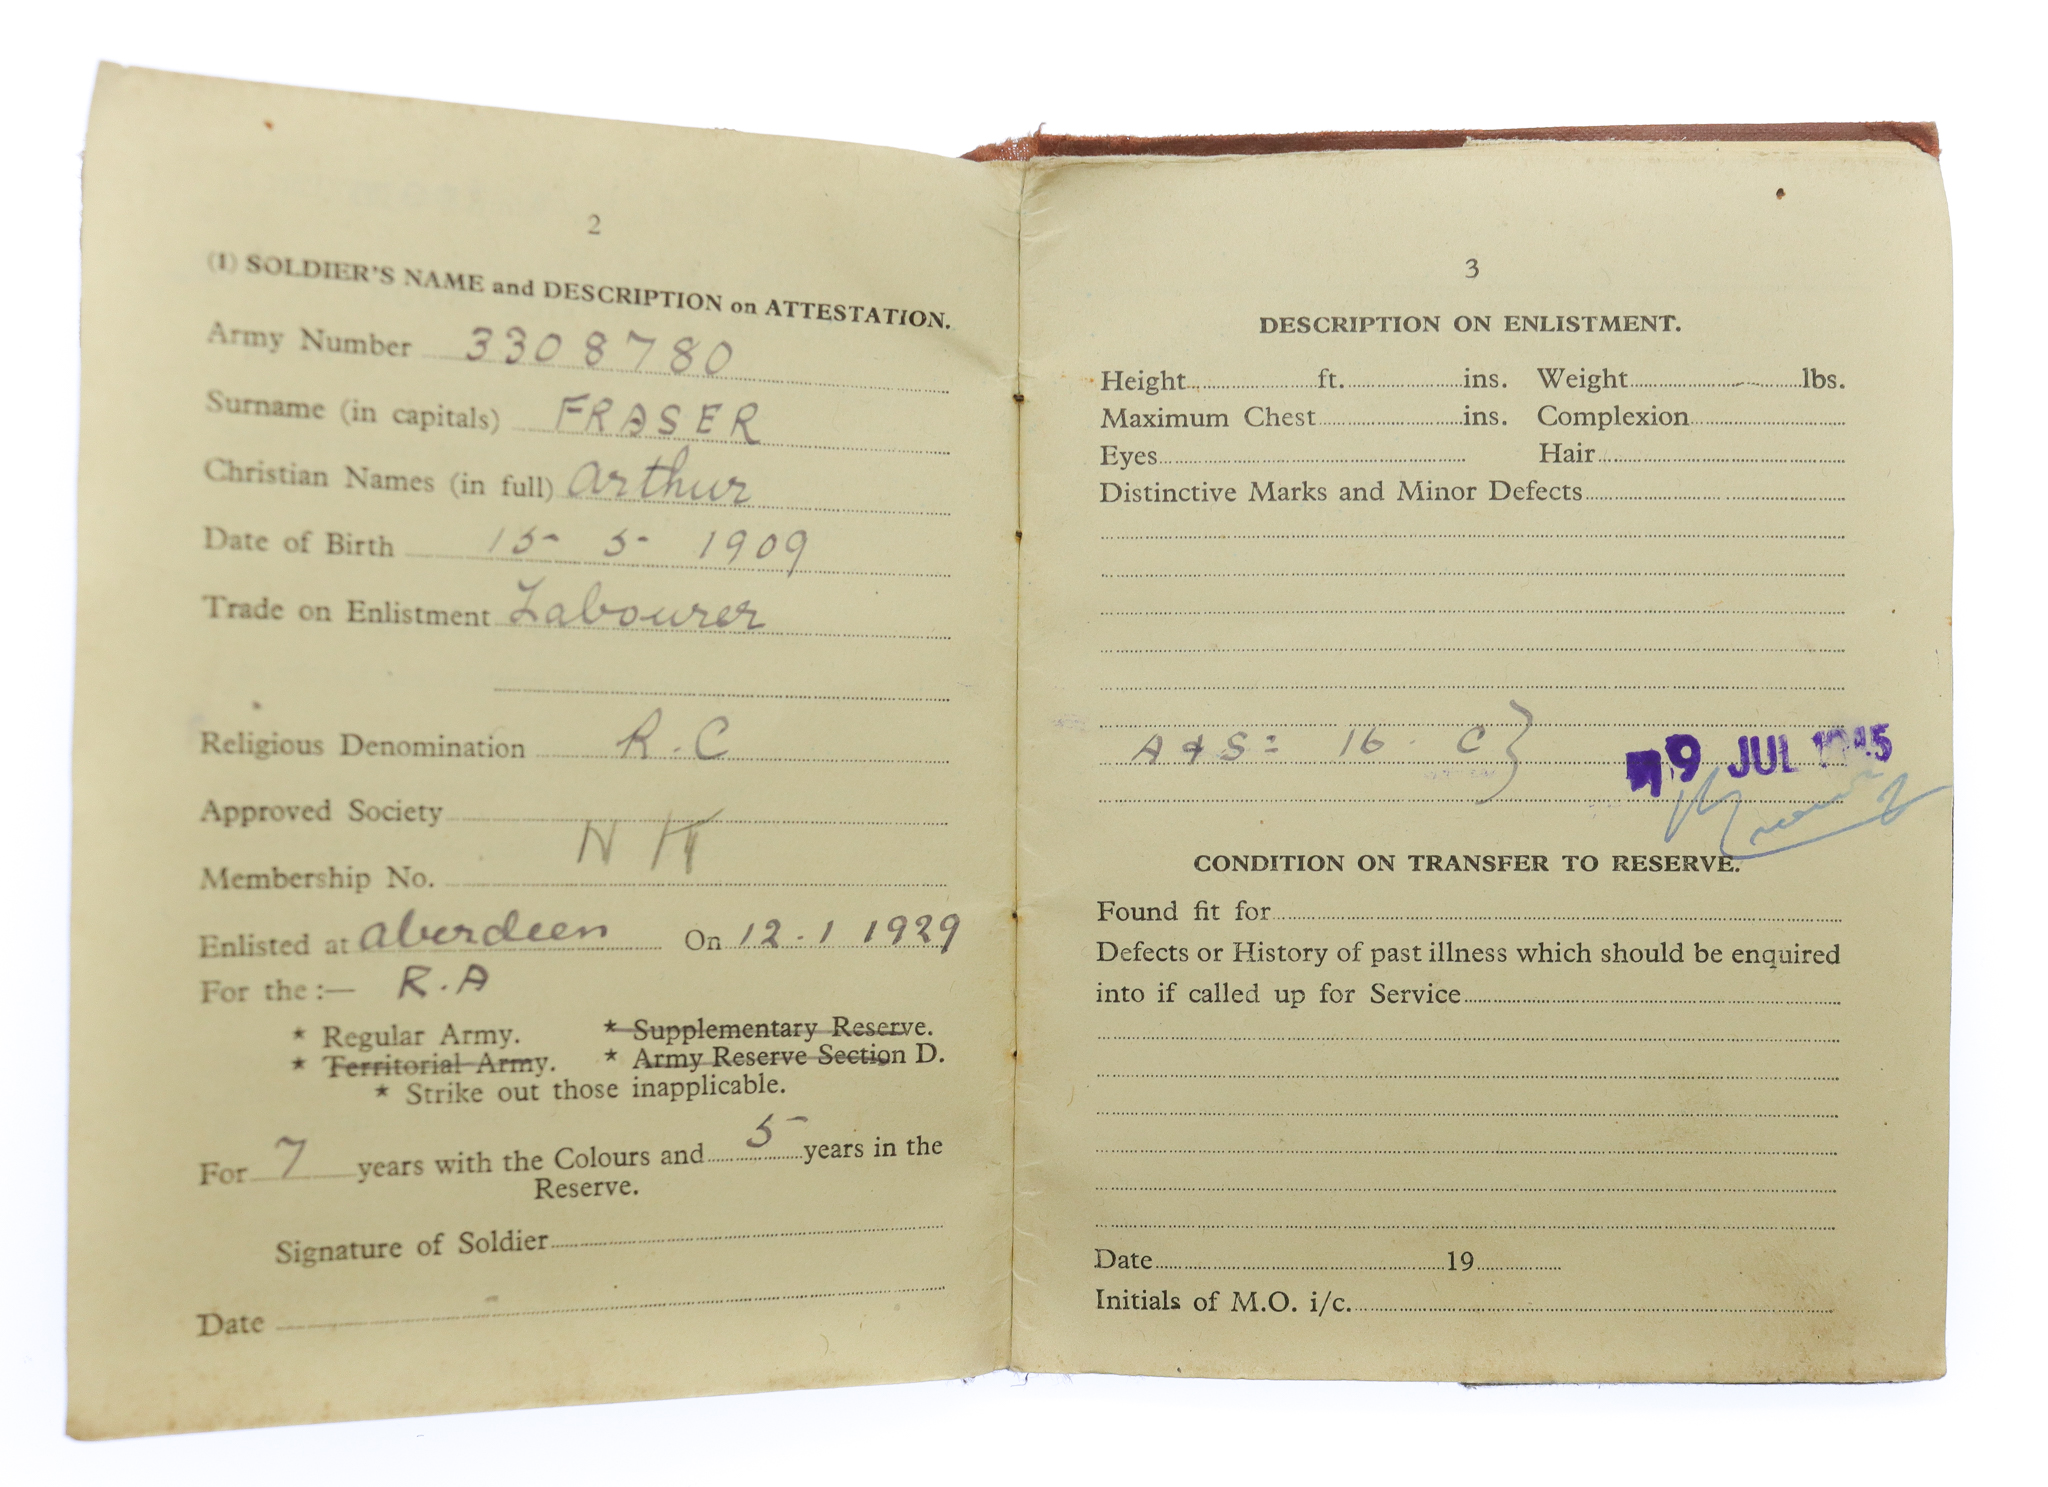 2
(1) SOLDIER'S NAME and DESCRIPTION on ATTESTATION.
Army Number 3308780
Surname (in capitals) FRASER
Christian Names (in full) Arthur
Date of Birth 15- 5- 1909
Trade on Enlistment Labourer
Religious Denomination R.C
Approved Society
N K
Membership No.
Enlisted at Aberdeen On 12.1 1929
For the :— R.A
* Regular Army. * Supplementary Reserve.
* Territorial Army. * Army Reserve Section D.
* Strike out those inapplicable.
For 7 years with the Colours and 5 years in the
Reserve.
Signature of Soldier
Date
3
DESCRIPTION ON ENLISTMENT.
Height ft. ins. Weight lbs.
Maximum Chest ins. Complexion
Eyes Hair
Distinctive Marks and Minor Defects
A & S = 16. C } 9 JUL 1945
CONDITION ON TRANSFER TO RESERVE.
Found fit for
Defects or History of past illness which should be enquired
into if called up for Service
Date 19
Initials of M.O. i/c.